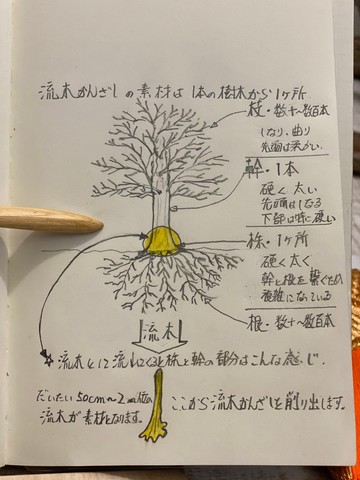 流木かんざしの素材は1本の樹木から1ヶ所
枝・数十〜数百本
しなり・曲り
先端は柔かい
幹・1本
硬く太い
先端はしなる
下部は特に硬い
株・1ヶ所
硬く太く
幹と根を繋ぐため
複雑になっている
根・数十〜数百本
流木
☆流木として流れてくると株と幹の部分はこんな感じ。
だいたい50cm〜2m位の
流木が素材となります。
ここから流木かんざしを削り出します。